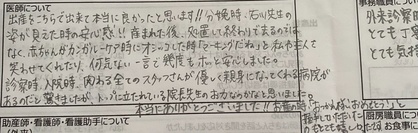 医師について
出産をこちらで出来て本当に良かったと思います!!分娩時、石川先生の
姿が見えた時の安心感!!産まれた後、処置して終わりでまるのでは
なく、赤ちゃんがカンガルーケア時にオシッコした時「マーキングだね」と私や主人を
笑わせてくれたり、何気ない一言で幾度もホッと安心しました。
診察時、入院時、関わる全てのスタッフさんが優しく親身になってくれる病院が
あるのだと驚きましたが、トップに立たれている院長先生のおかげなのかなと思いました。
本当にありがとうございました!!お産の時!「おっかさん、おめでとう!」と
助産師・看護師・看護助手について
事務職員に
外来診察
とても丁寧
とても気持
厨房職員に
とても
お食事に